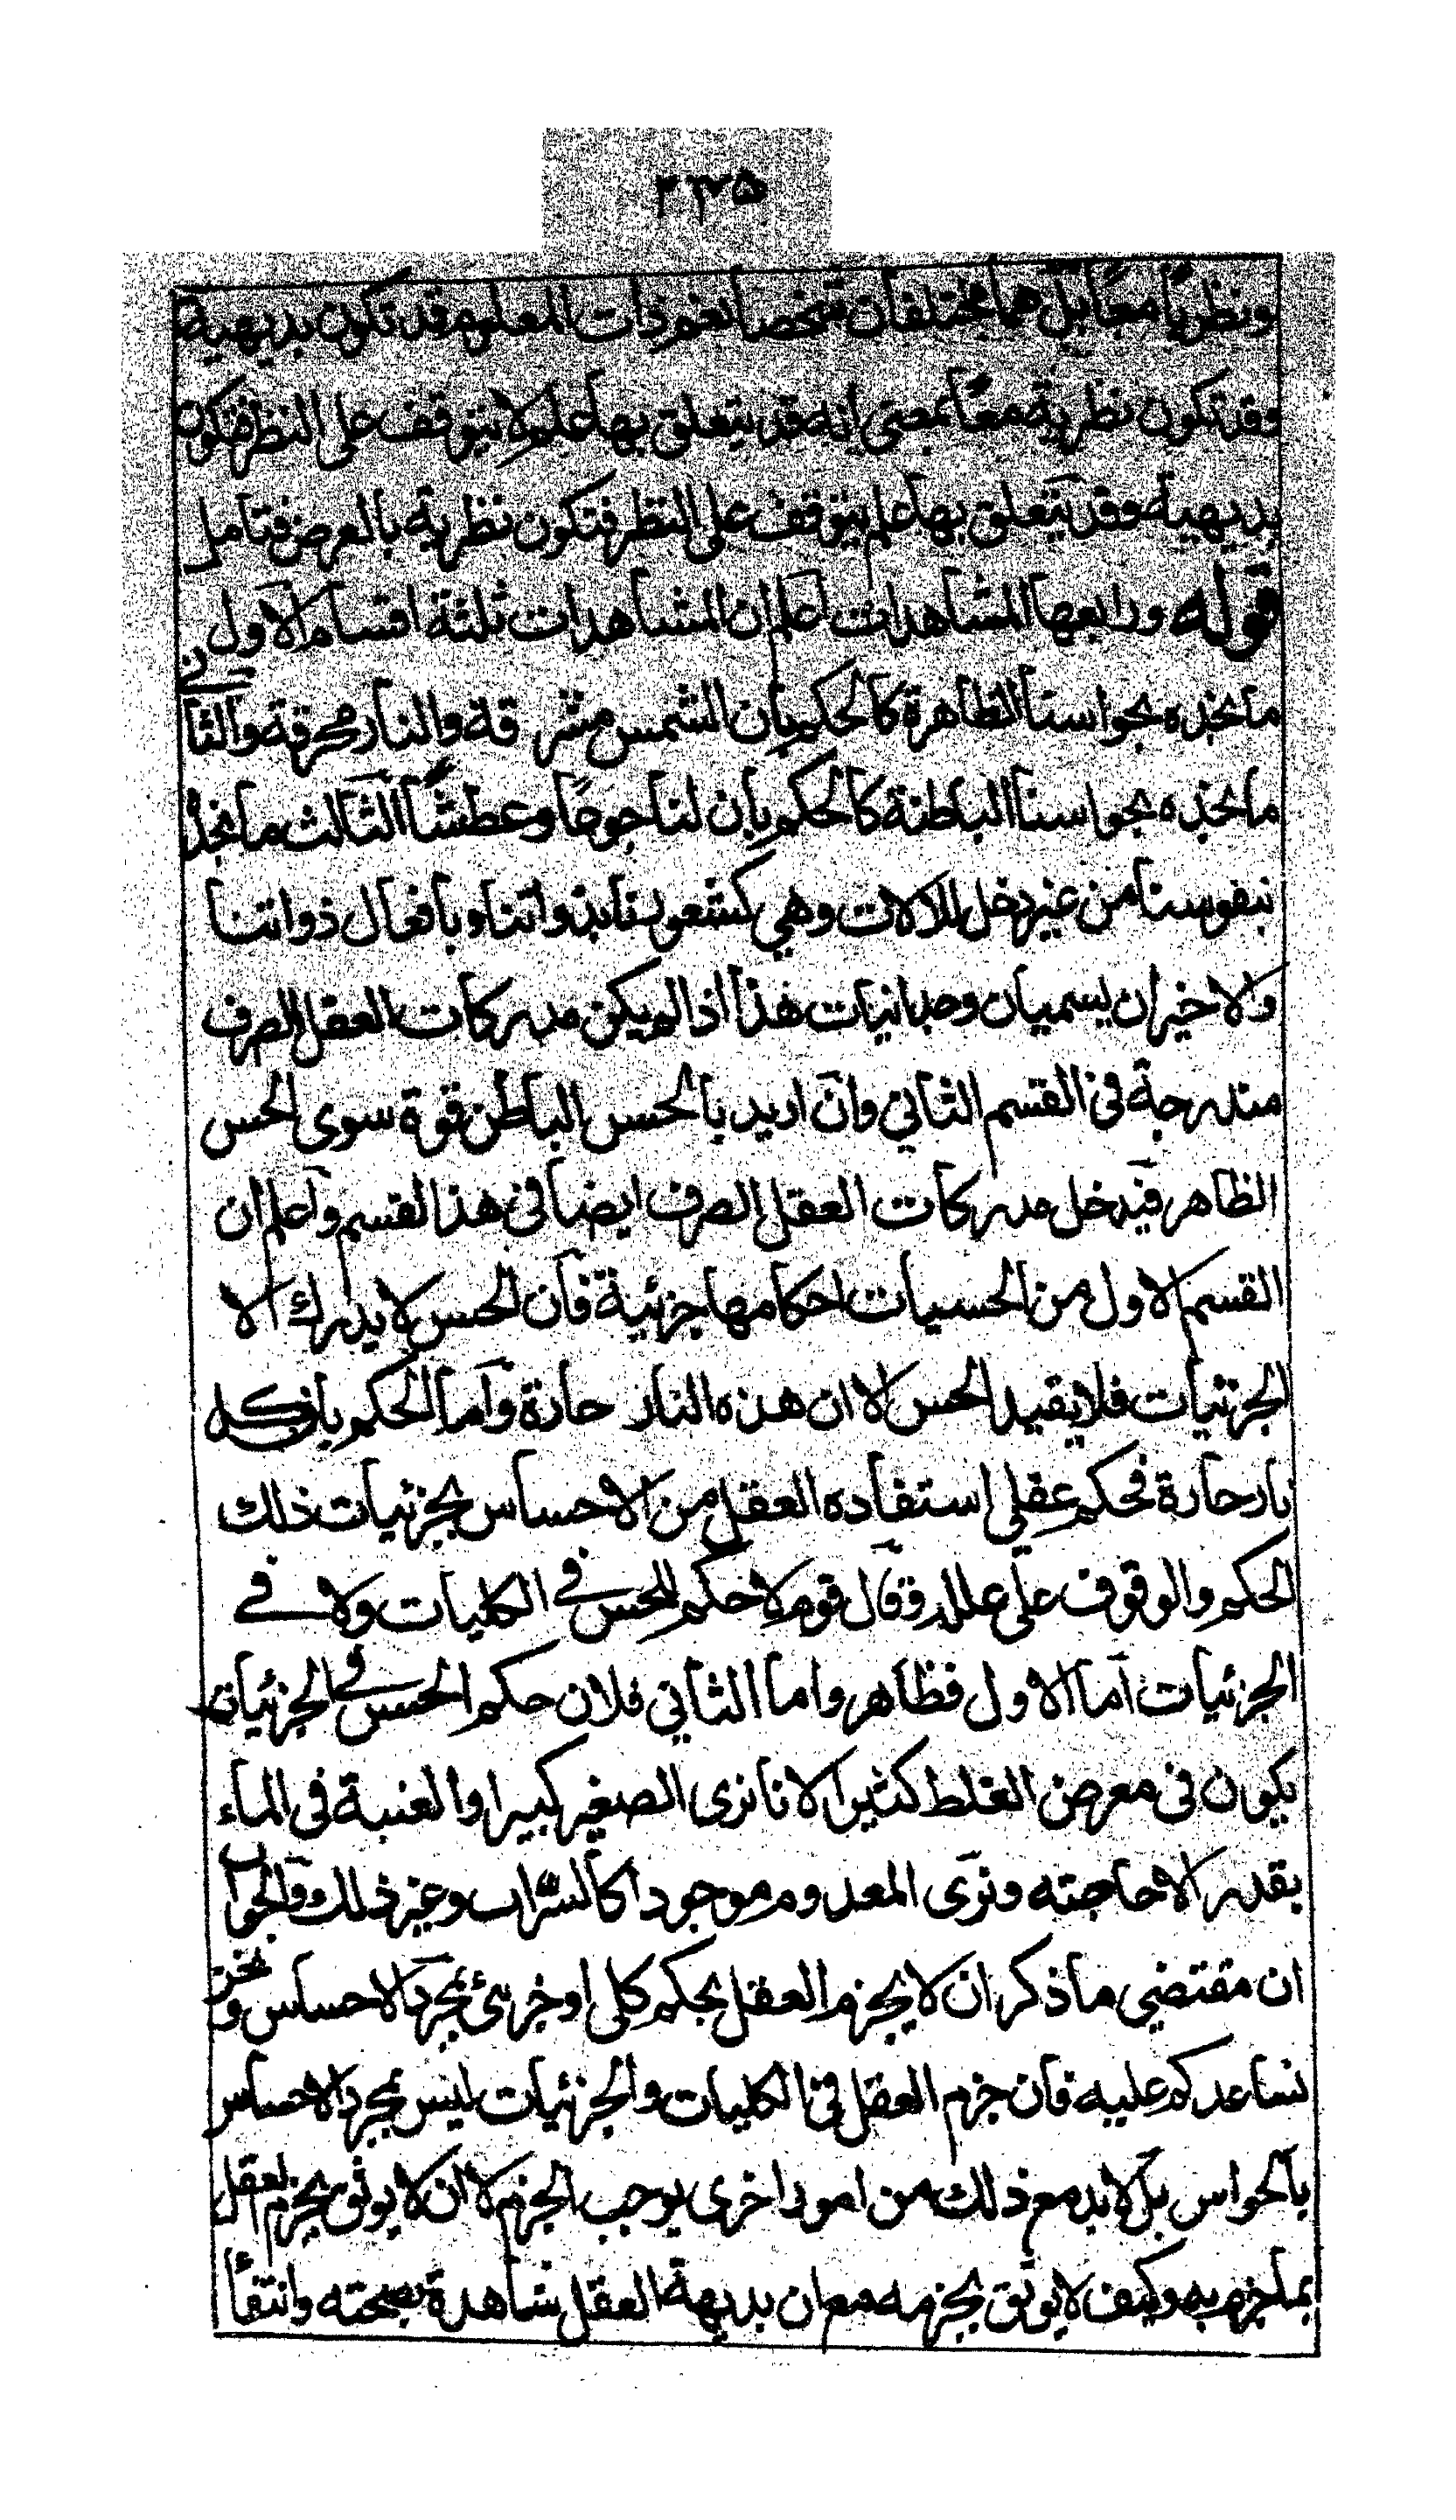 ۳۳۵
ونظريًا معًا بل هما مختلفان تشخصا نعم ذات المعلوم قد تكون بديهية
وقد تكون نظرية معًا بمعنى انه قد يتعلق بها علم لا يتوقف على النظر فتكون
بديهية وقد يتعلق بها علم يتوقف على النظر فتكون نظرية بالعرض فتامل
قوله ورابعها المشاهدات اعلم ان المشاهدات ثلثة اقسام الاول
ما نجذه بحواسنا الظاهرة كالحكم بان الشمس مشرقة والنار محرقة والثاني
ما نجذه بحواسنا الباطنة كالحكم بان لنا جوعًا وعطشًا الثالث ما نجذ
بنفوسنا من غير دخل للالات وهي كشعورنا بذواتنا وبافعال ذواتنا
والاخيران يسميان وجدانيات هذا اذا لم يكن مدركات العقل الصرف
مندرجة في القسم الثاني وان اريد بالحس الباطن قوة سوى الحس
الظاهر فيدخل مدركات العقل الصرف ايضا في هذا القسم واعلم ان
القسم الاول من الحسيات احكامها جزئية فان الحس لا يدرك الا
الجزئيات فلا يفيد الحس الا ان هذه النار حارة واما الحكم بان كل
نار حارة فحكم عقلي استفاده العقل من الاحساس بجزئيات ذلك
الحكم والوقوف على علله وقال قوم لا حكم للحس في الكليات ولا في
الجزئيات اما الاول فظاهر واما الثاني فلان حكم الحس في الجزئيات
يكون في معرض الغلط كثيرا لانا نرى الصغير كبيرا والعنبة في الماء
بقدر الاجاصته ونرى المعدوم موجودا كالسراب وغير ذلك والجواب
ان مقتضى ما ذكر ان لا يجزم العقل بحكم كلي او جزئي بمجرد الاحساس ونحن
نساعدكم عليه فان جزم العقل في الكليات والجزئيات ليس بمجرد الاحساس
بالحواس بل لا بد مع ذلك من امور اخرى يوجب الجزم لا ان لا يوثق بجزم العقل
بما جزم به وكيف لا يوثق بجزمه مع ان بديهة العقل شاهدة بصحته وانتفاء